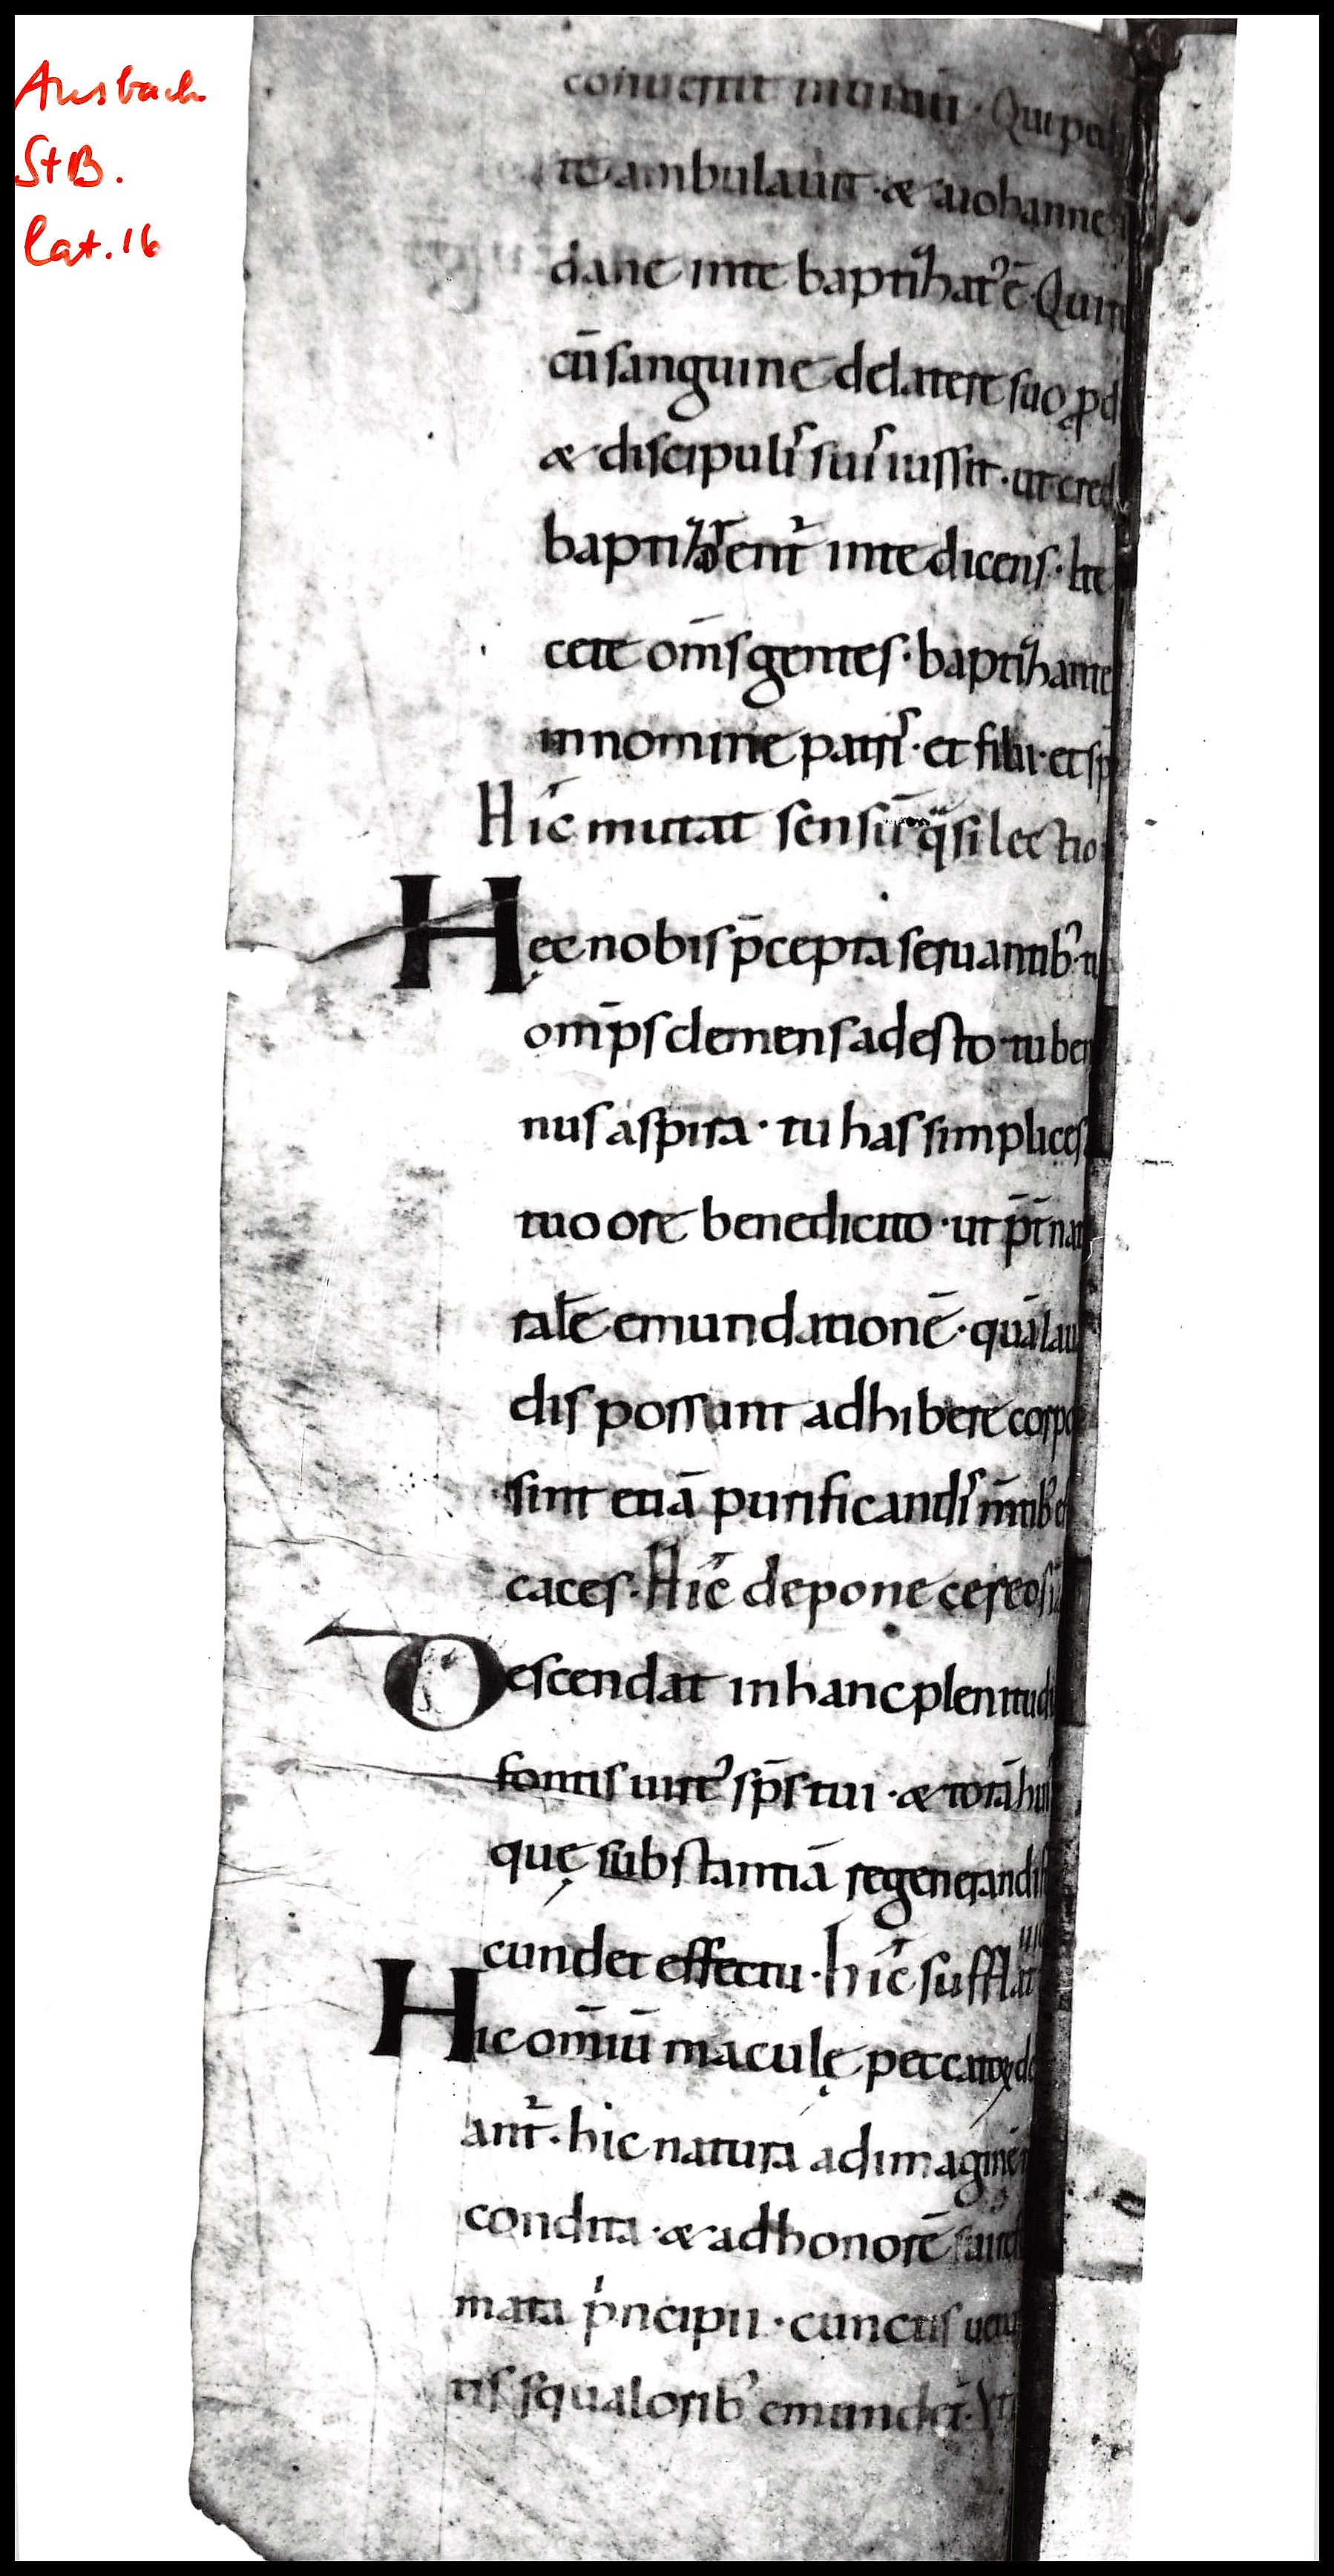 Ansbach
StB.
lat. 16
conuertit in uinū · Qui ped
te ambulauit · & aiohanne
dane inte baptiҙat᾽ ē · Quiu
cū sanguine delatere suo ꝓd
& discipulis suis iussit · ut cred
baptiҙarent᾽ inte dicens · Ite
cete om̄s gentes · baptiҙante
innomine patris · et filii · et sp
Hic mutat sensū q̈si lectio
Hęc nobis p̄cepta seruantib᾽ tu
om̄ps clemens adesto · tu ben
nus aspira · tu has simplices
tuo ore benedicito · ut p̄t nat
ralē emundationē · quā lau
dis possunt adhibere corpo
sint etiā purificandis m̄tib᾽ ef
caces · Hic depone cereos
Descendat inhanc plenitudi
fontis uirt᾽ sp̄s tui · & totā hui
quę substantiā regenerandis
cundet effectu · hic sufflat
Hic om̄iū maculę peccatoꝝ de
ant᾽ · hic natura adimaginē
condita · & adhonorē sui
mata pⁱncipii · cunctis uetu
tis squalorib᾽ emundet᾽ · Vt